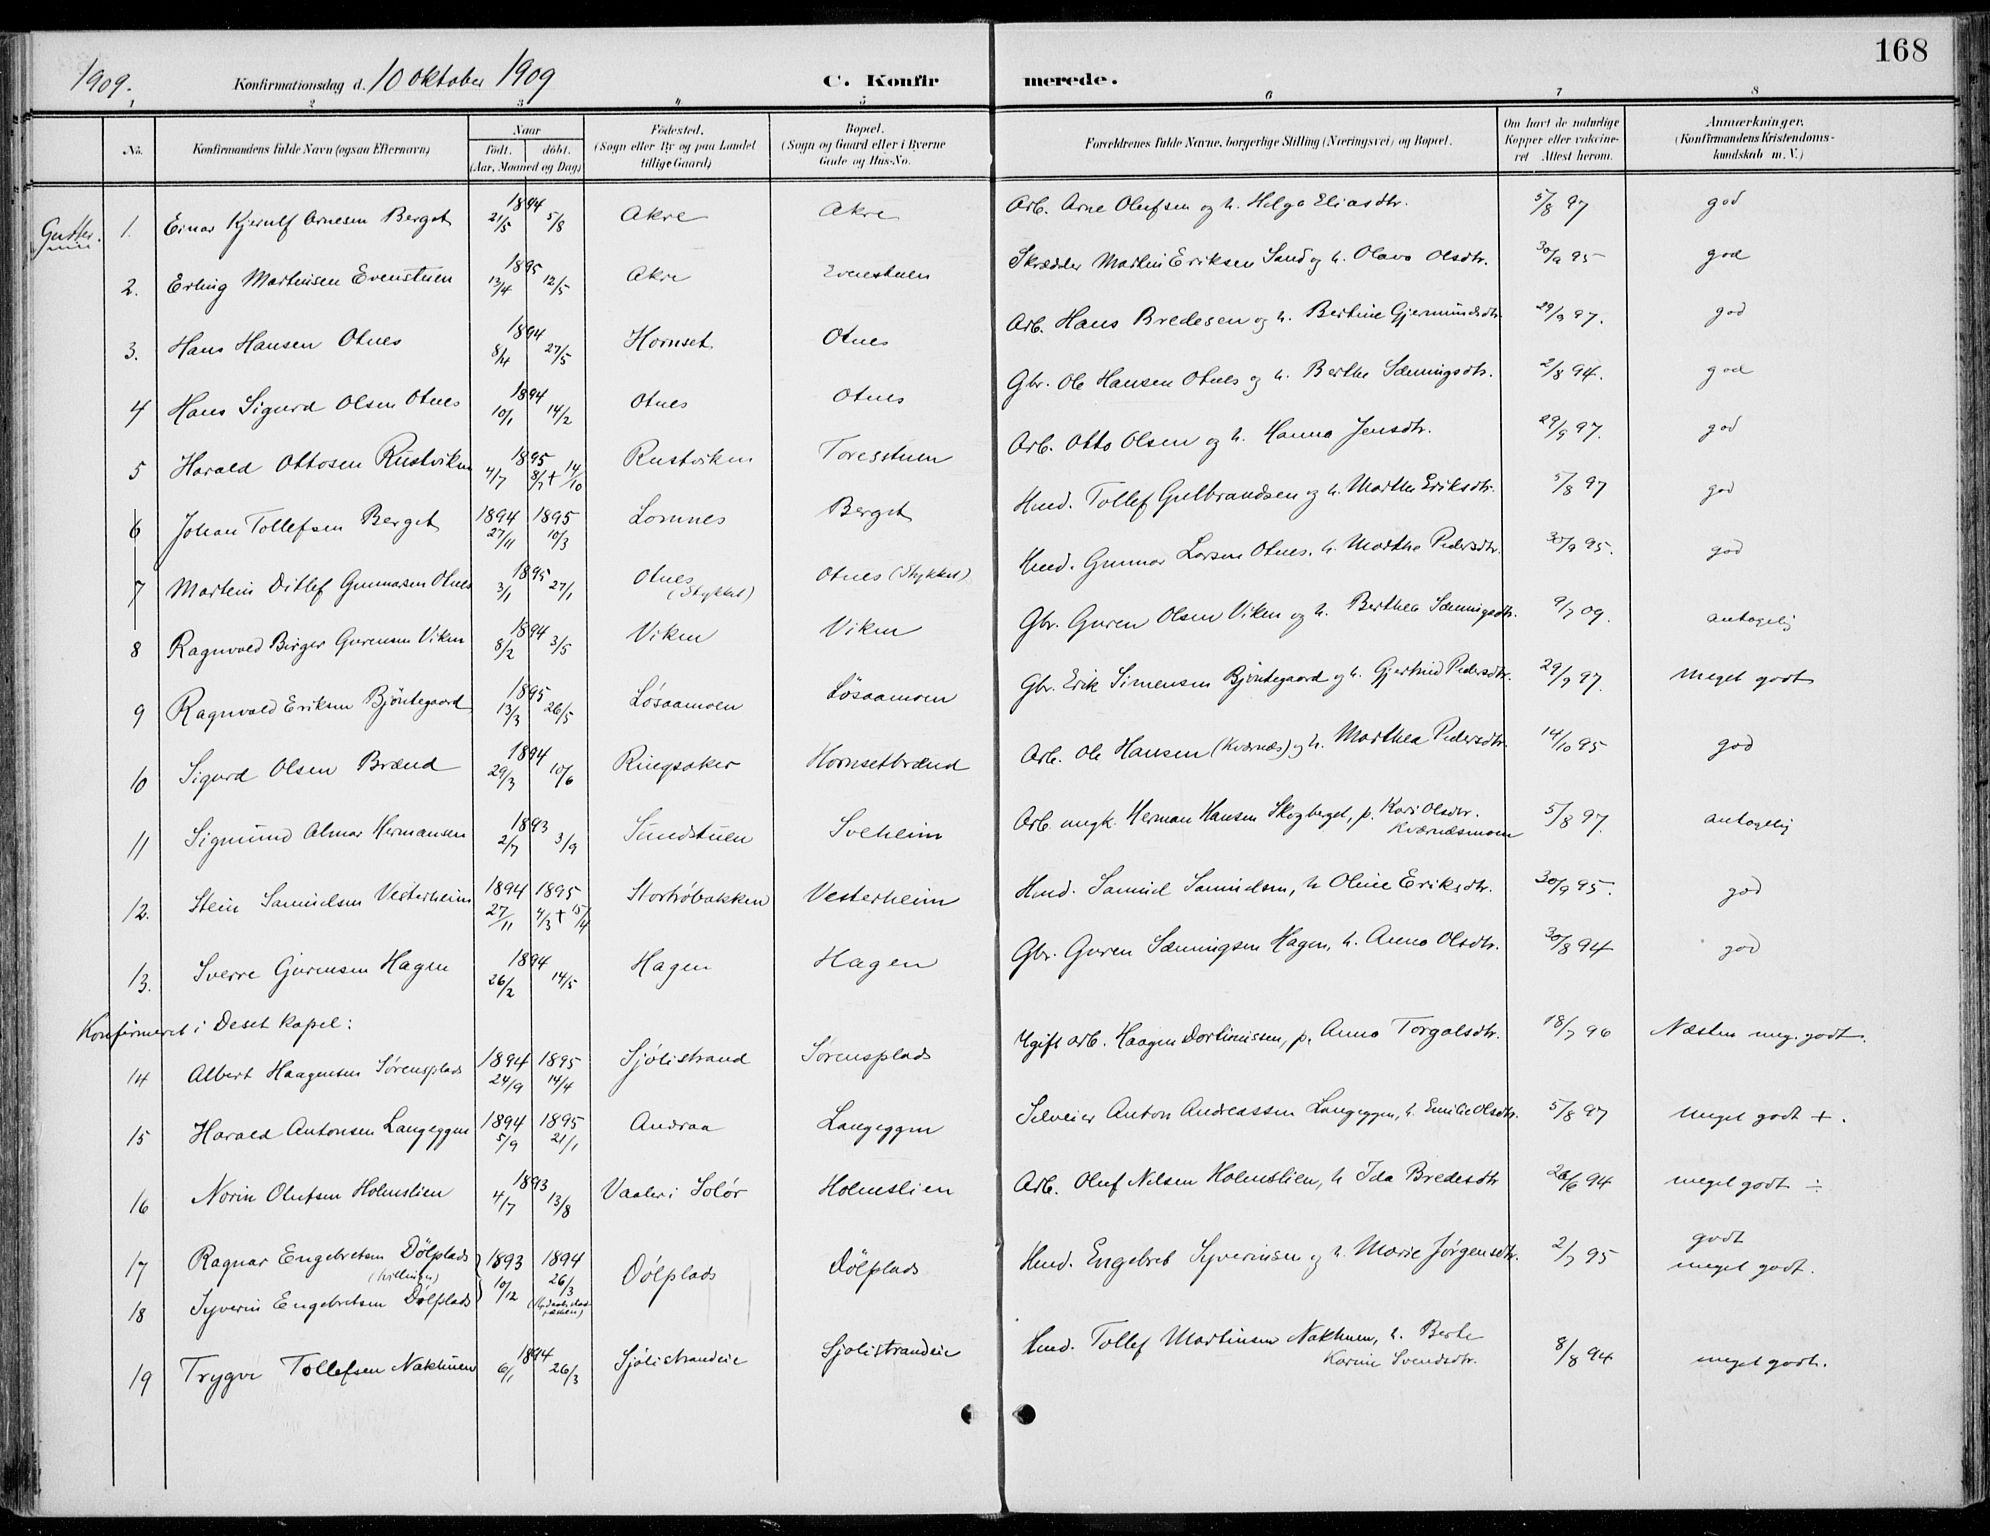 168
1909. Konfirmationsdag d. 10 oktober 1909 C. Konfir merede.
1 2 3 4 5 6 7 8
No. Konfirmandens fulde Navn (ogsaa Efternavn) Naar født. døbt. (Aar, Maaned og Dag) Fødested. (Sogn eller By og paa Landet tillige Gaard) Bopæl. (Sogn og Gaard eller i Byerne Gade og Hus-No. Forældrenes fulde Navne, borgerlige Stilling (Næringsvei) og Bopæl. Om havt de naturlige Kopper eller vakcineret Attest herom. Anmærkninger. (Konfirmandens Kristendomskundskab m. V.)
Gutter.
1. Einar Kjerulf Arnesen Berget 1894 21/5 5/8 Akre Akre Arb. Arne Olufsen og h. Helga Eliasdtr. 5/8 97 god
2. Erling Martinsen Evenstuen 1895 13/4 12/5 Akre Evenstuen Skrædder Martin Eriksen Sand og h. Olava Olsdtr. 30/9 95 god
3. Hans Hansen Otnes 1894 8/4 27/5 Hornset Otnes Arb. Hans Bredesen og h. Bertine Gjermundsdtr. 29/9 97. god
4 Hans Sigurd Olsen Otnes 1894 10/1 14/2 Otnes Otnes Gbr. Ole Hansen Otnes og h. Berthe Sænningsdtr. 2/8 94. god
5 Harald Ottosen Rustviken 1895 4/7 8/7 + 14/10 Rustviken Toresstuen Arb. Otto Olsen og h. Hanna Jensdtr. 29/9 97. god
6 Johan Tollefsen Berget 1894 27/11 1895 10/3 Lomnes Berget Hmd. Tollef Gulbrandsen og h. Marthe Eriksdtr. 5/8 97 god
7 Martin Ditlef Gunnarsen Otnes 1895 3/1 27/1 Otnes (Stykket) Otnes (Stykket) Hmd. Gunnar Larsen Otnes, h. Marthe Pedersdtr. 30/9 95. god
8 Ragnvald Birger Gurensen Viken 1894 8/2 3/5 Viken Viken Gbr. Guren Olsen Viken og h. Berthea Sænningsdtr. 9/7 09. antagelig
9 Ragnvald Eriksen Bjøntegaard 1895 13/3 26/5 Løsaamoen Løsaamoen Gbr. Erik Simensen Bjøntegaard og h. Gjertrud Pedersdtr. 29/9 97. Meget godt
10 Sigurd Olsen Brænd 1894 29/3 10/6 Ringsaker Hornsetbrænd Arb. Ole Hansen (Kværnæs) og h. Marthea Pedersdtr. 14/10 95 god
11 Sigmund Almar Hermansen 1893 2/7 3/9 Sundstuen Solheim Arb. ungk. Herman Hansen Skogberget, p. Kari Olsdtr. Kværnæsmoen 5/8 97. antagelig
12. Stein Samuelsen Vesterheim 1894 27/11 1895 4/3 + 15/4 Stortrøbakken Vesterheim Hmd. Samuel Samuelsen, h Oline Eriksdtr. 30/9 95. god
13. Sverre Gurensen Hagen 1894 26/2 14/5 Hagen Hagen Gbr. Guren Sænningsen Hagen, h. Anna Olsdtr. 30/8 94 god
Konfirmeret i Deset kapel:
14 Albert Haagensen Sørensplads 1894 24/9 1895 14/4 Sjølistrand Sørensplads Ugift arb. Haagen Dortinussen, p. Anna Torgalsdtr. 18/7 96 Næsten meg. godt.
15 Harald Antonsen Langeggen 1894 5/9 1895 21/1 Andraa Langeggen Selveier Anton Andreassen Langeggen, h. Emilie Olsdtr. 5/8 97 Meget godt +.
16 Norin Olufsen Holmslien 1893 4/7 13/8 Vaaler i Solør Holmslien Arb. Oluf Nilsen Holmslien, h Ida Bredesdtr 26/6 94 meget godt ÷
17 Ragnar Engebretsen Dølplads (tvillinger) 1893 10/12 1894 26/3 Dølplads Dølplads Hmd. Engebret Syverinsen og h. Marie Jørgensdtr. 2/7 95 godt
18 Syverin Engebretsen Dølplads meget godt.
19 Trygve Tollefsen Nakkuen 1894 6/1 26/3 Sjølistrandeie Sjølistrandeie Hmd. Tollef Martinsen Nakkuen, h. Berte Karine Svendsdtr. 8/8 94 meget godt.